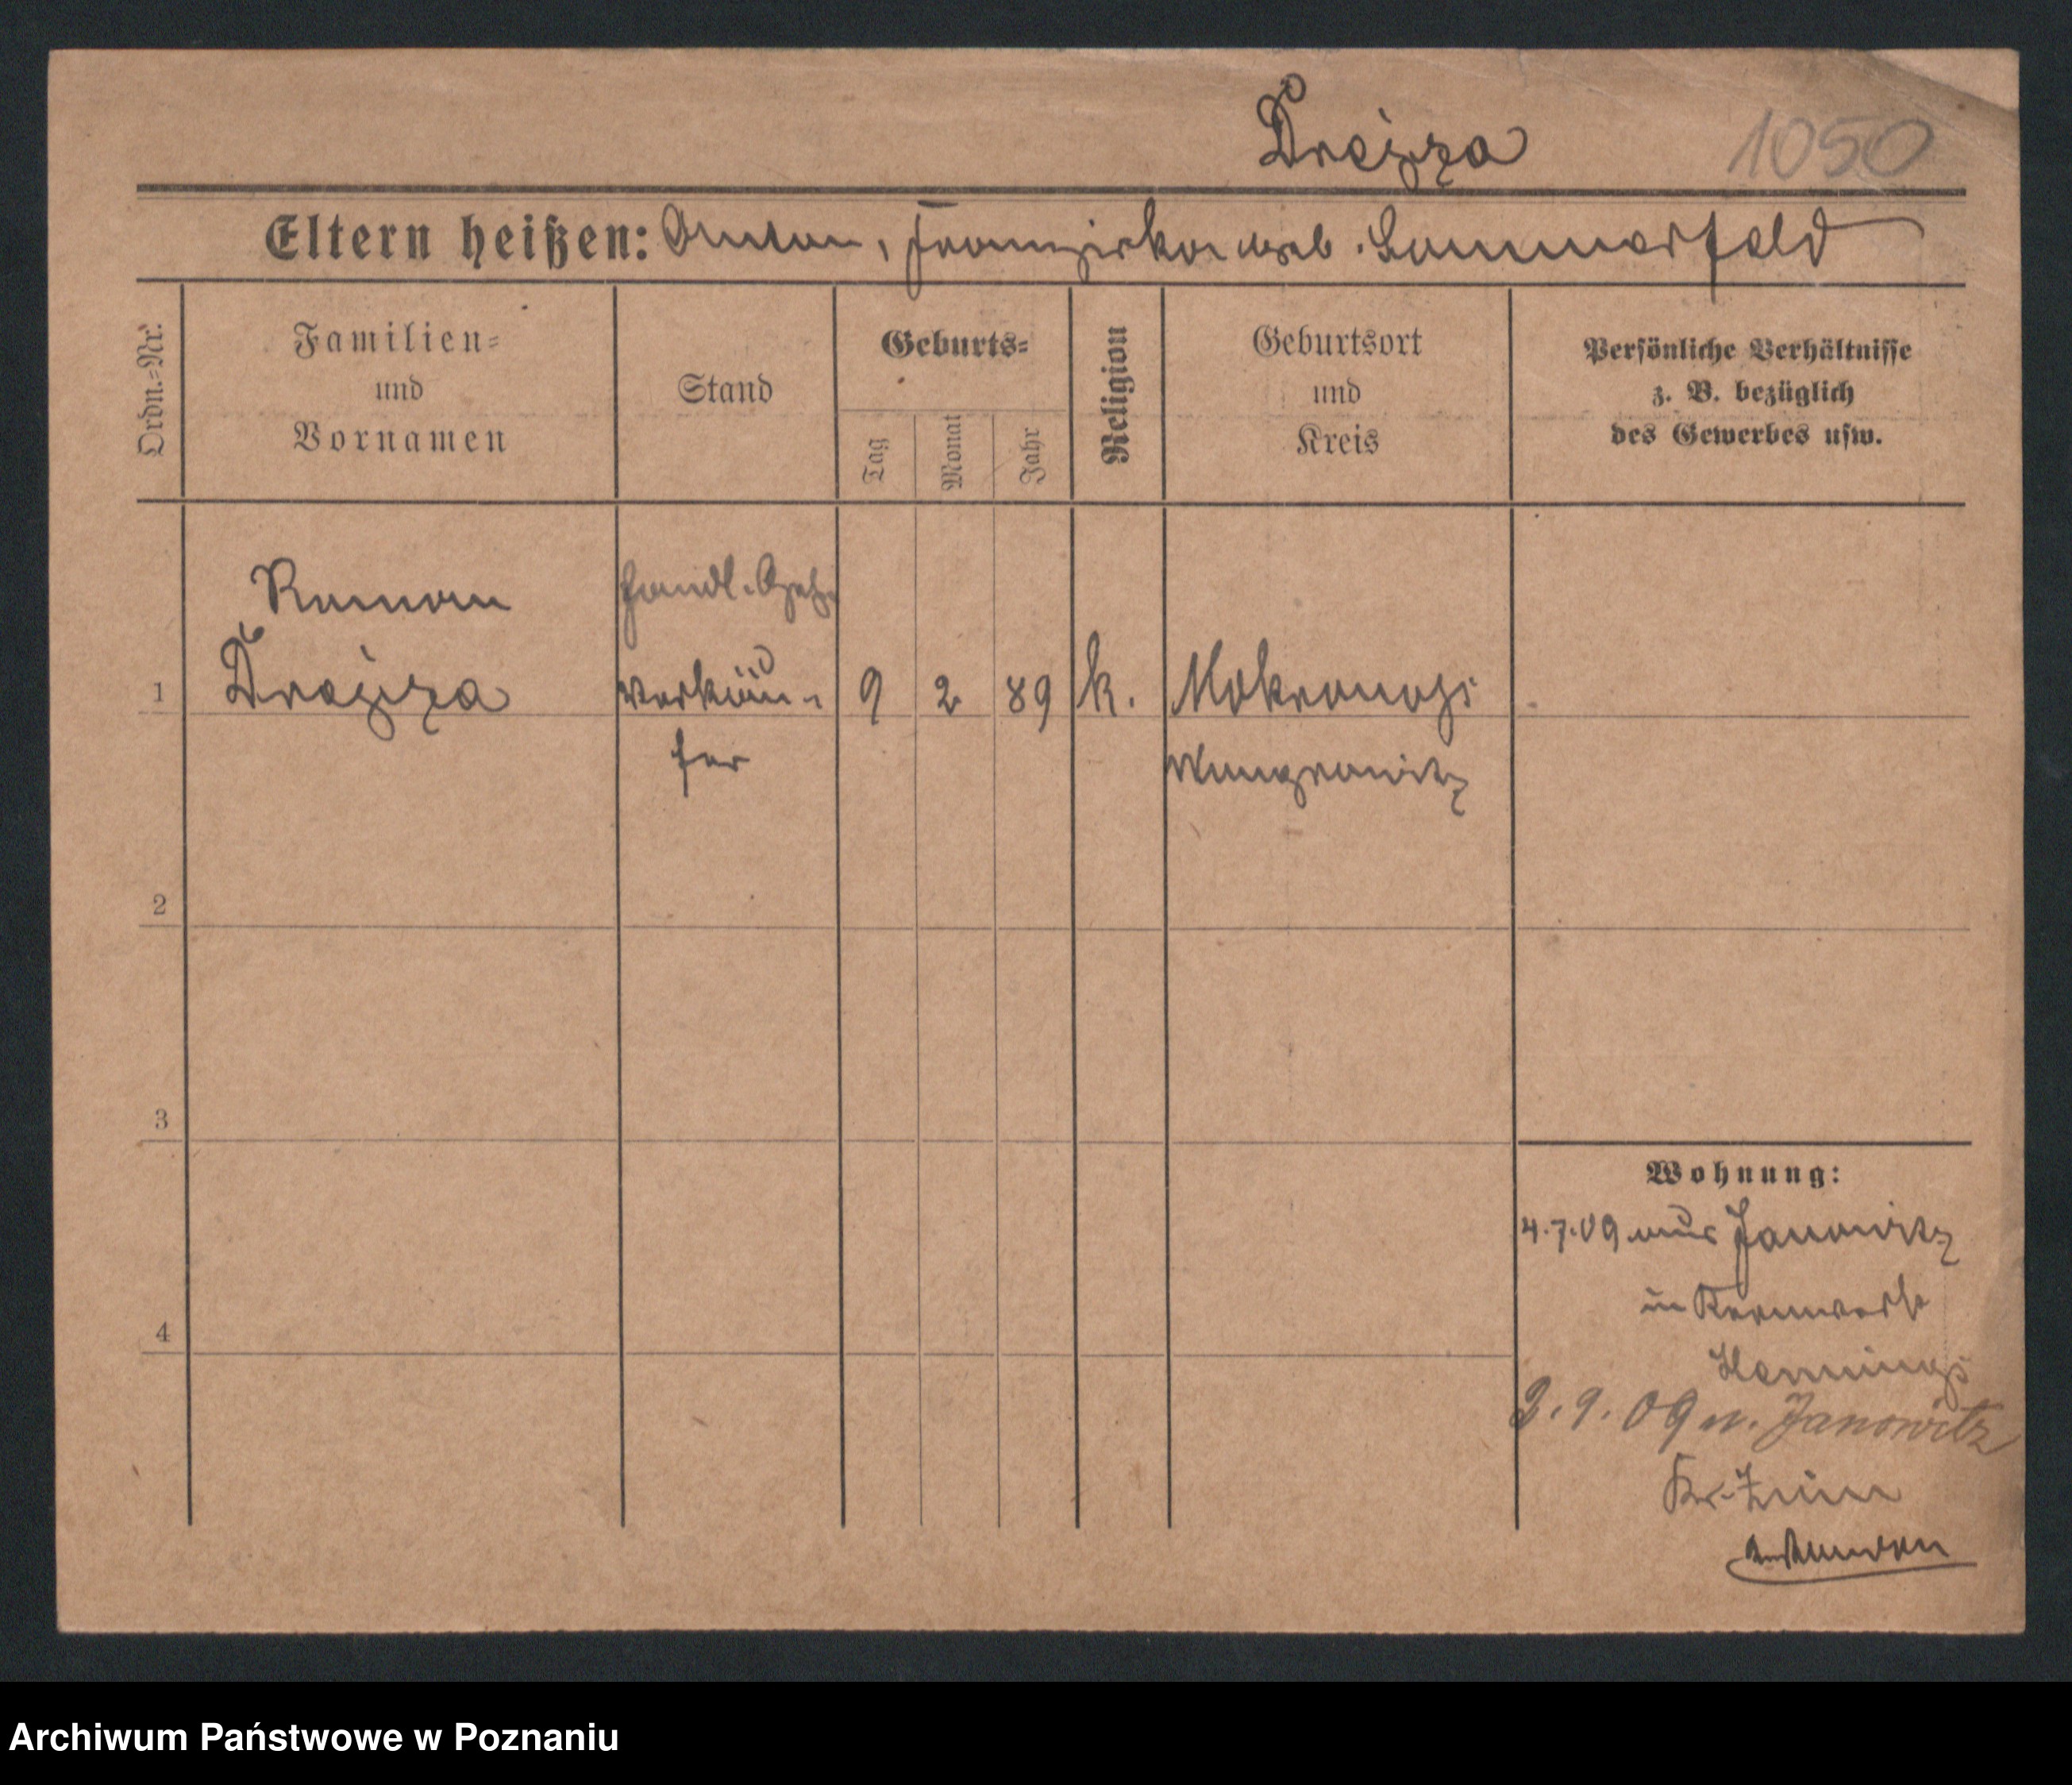 Drejza 1050
Eltern heißen: Anton, Franziska geb. Sommerfeld
Ordn.-Nr.
Familien-
und
Vornamen
Stand
Geburts-
Tag
Monat
Jahr
Religion
Geburtsort
und
Kreis
Persönliche Verhältnisse
z. B. bezüglich
des Gewerbes usw.
Roman
Drejza
Handl. Geh.
Verkäu-
fer
1
9 2 89 k.
Mokronos
Wongrowitz
2
3
4
Wohnung:
4.7.09 aus Janowitz
in Kernwerk
3.9.09 n. Janowitz
Kr. Znin
Archiwum Państwowe w Poznaniu